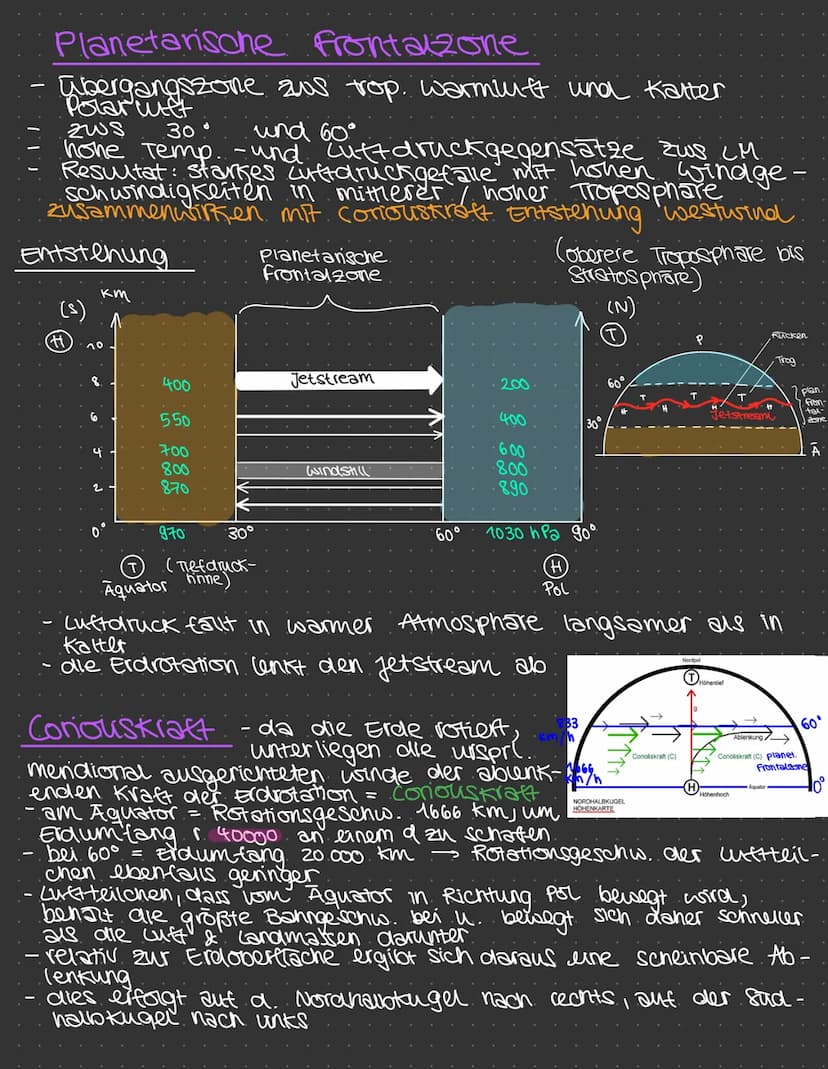 Planetarische Frontalzone
- Übergangszone zws trop. Warmluft und Kalter
Polarluft
- zws 30° und 60°
- hohe Temp. - und Luftdruckgegensätze zws LM
- Resultat: starkes Luftdruckgefälle mit hohen Windge-
schwindigkeiten in mittlerer / hoher Troposphäre
Zusammenwirken mit Corioliskraft Entstehung Westwind
Entstehung
Planetarische
Frontalzone
(oberere Troposphäre bis
Stratosphäre)
km
(S)
(N)
H
T
10
8
6
4
2
0°
400
550
700
800
870
970
Jetstream
windstill
200
400
600
800
890
1030 hPa
30°
60°
90°
T (Tiefdruck-
rinne)
Äquator
H
Pol
P
Rücken
Trog
60°
30°
T T T
H H H H
Jetstream
plan.
Fron-
tal-
zone
Ä
- Luftdruck fällt in warmer Atmosphäre langsamer als in
Kalter
- die Erdrotation lenkt den Jetstream ab
Nordpol
T Höhentief
833
km/h
60°
g
Ablenkung
Corioliskraft (C)
Corioliskraft (C)
planet.
Frontalzone
1666
km/h
H
Höhenhoch
Äquator
0°
NORDHALBKUGEL
HÖHENKARTE
Corioliskraft - da die Erde rotiert,
unterliegen die urspr.
meridional ausgerichteten Winde der ablenk-
enden Kraft der Erdrotation = Corioliskraft
- am Äquator = Rotationsgeschw. 1666 km, um
Erdumfang v. 40000 an einem d zu schaffen
- bei 60° = Erdumfang 20.000 km → Rotationsgeschw. der Luftteil-
chen ebenfalls geringer
- Luftteilchen, dass vom Äquator in Richtung Pol bewegt wird,
behält die größte Bahngeschw. bei u. bewegt sich daher schneller
als die Luft & Landmassen darunter
- relativ zur Erdoberfläche ergibt sich daraus eine scheinbare Ab-
lenkung
- dies erfolgt auf d. Nordhalbkugel nach rechts, auf der Süd-
halbkugel nach links